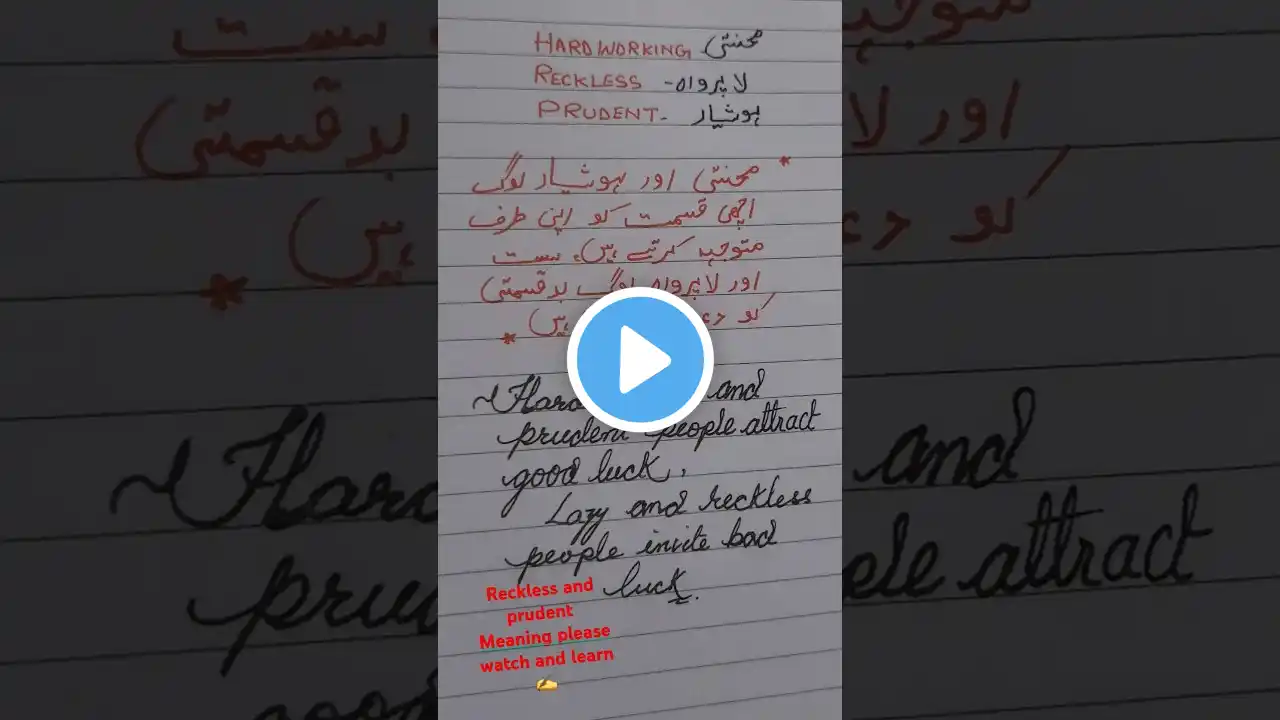 HARDWORKING محنتی
RECKLESS - لاپرواہ
PRUDENT - ہوشیار
* محنتی اور ہوشیار لوگ
اچھی قسمت کو اپنی طرف
متوجہ کرتے ہیں، سست
اور لاپرواہ لوگ بدقسمتی
کو ہیں *
~ and
prudent people attract
good luck,
Lazy and reckless
people invite bad
luck.
Reckless and
prudent
Meaning please
watch and learn
✍️